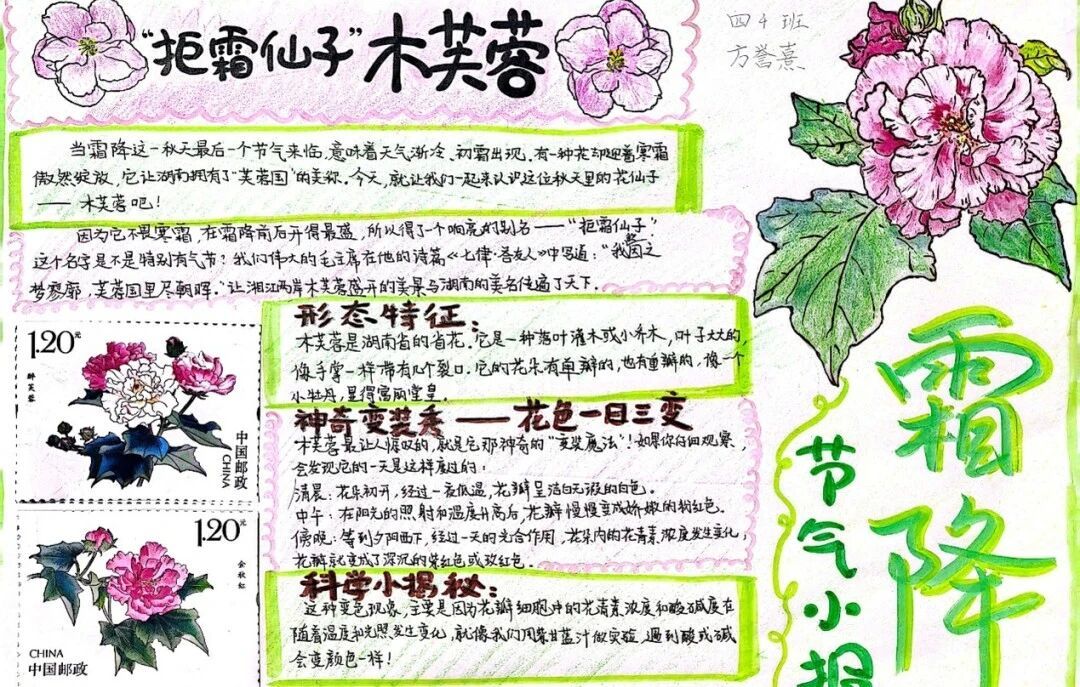 “拒霜仙子”木芙蓉
四4班
方誉熹
当霜降这一秋天最后一个节气来临,意味着天气渐冷、初霜出现。有一种花却迎着寒霜
傲然绽放,它让湖南拥有了“芙蓉国”的美称。今天,就让我们一起来认识这位秋天里的花仙子
——木芙蓉吧!
因为它不畏寒霜,在霜降前后开得最盛,所以得了一个响亮的别名——“拒霜仙子”。
这个名字是不是特别有气节?我们伟大的毛主席在他的诗篇《七律·答友人》中写道:“我欲因之
梦寥廓,芙蓉国里尽朝晖。”让湘江两岸木芙蓉盛开的美景与湖南的美名传遍了天下。
形态特征:
木芙蓉是湖南省的省花。它是一种落叶灌木或小乔木,叶子大大的,
像手掌一样带有几个裂口。它的花朵有单瓣的,也有重瓣的,像一个
小牡丹,显得富丽堂皇。
神奇变装秀——花色一日三变
木芙蓉最让人惊叹的,就是它那神奇的“变装魔法”!如果你仔细观察,
会发现它的一天是这样度过的:
清晨:花朵初开,经过一夜低温,花瓣呈洁白无瑕的白色。
中午:在阳光的照射和温度升高后,花瓣慢慢变成娇嫩的粉红色。
傍晚:等到夕阳西下,经过一天的光合作用,花朵内的花青素浓度发生变化,
花瓣就变成了深沉的紫红色或玫红色。
科学小揭秘:
这种变色现象,主要是因为花瓣细胞中的花青素浓度和酸碱度在
随着温度和光照发生变化,就像我们用紫甘蓝汁做实验,遇到酸或碱
会变颜色一样!
1.20元
醉芙蓉
中国邮政
CHINA
1.20元
金秋红
CHINA
中国邮政
霜降
节气小报